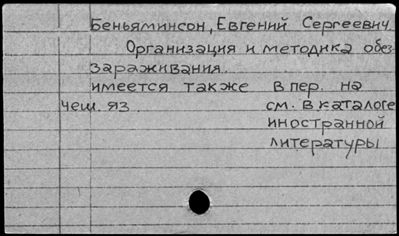 Беньяминсон, Евгений Сергеевич.
Организация и методика обез-
зараживания.
имеется также в пер. на
чеш. яз. см. в каталоге
иностранной
литературы